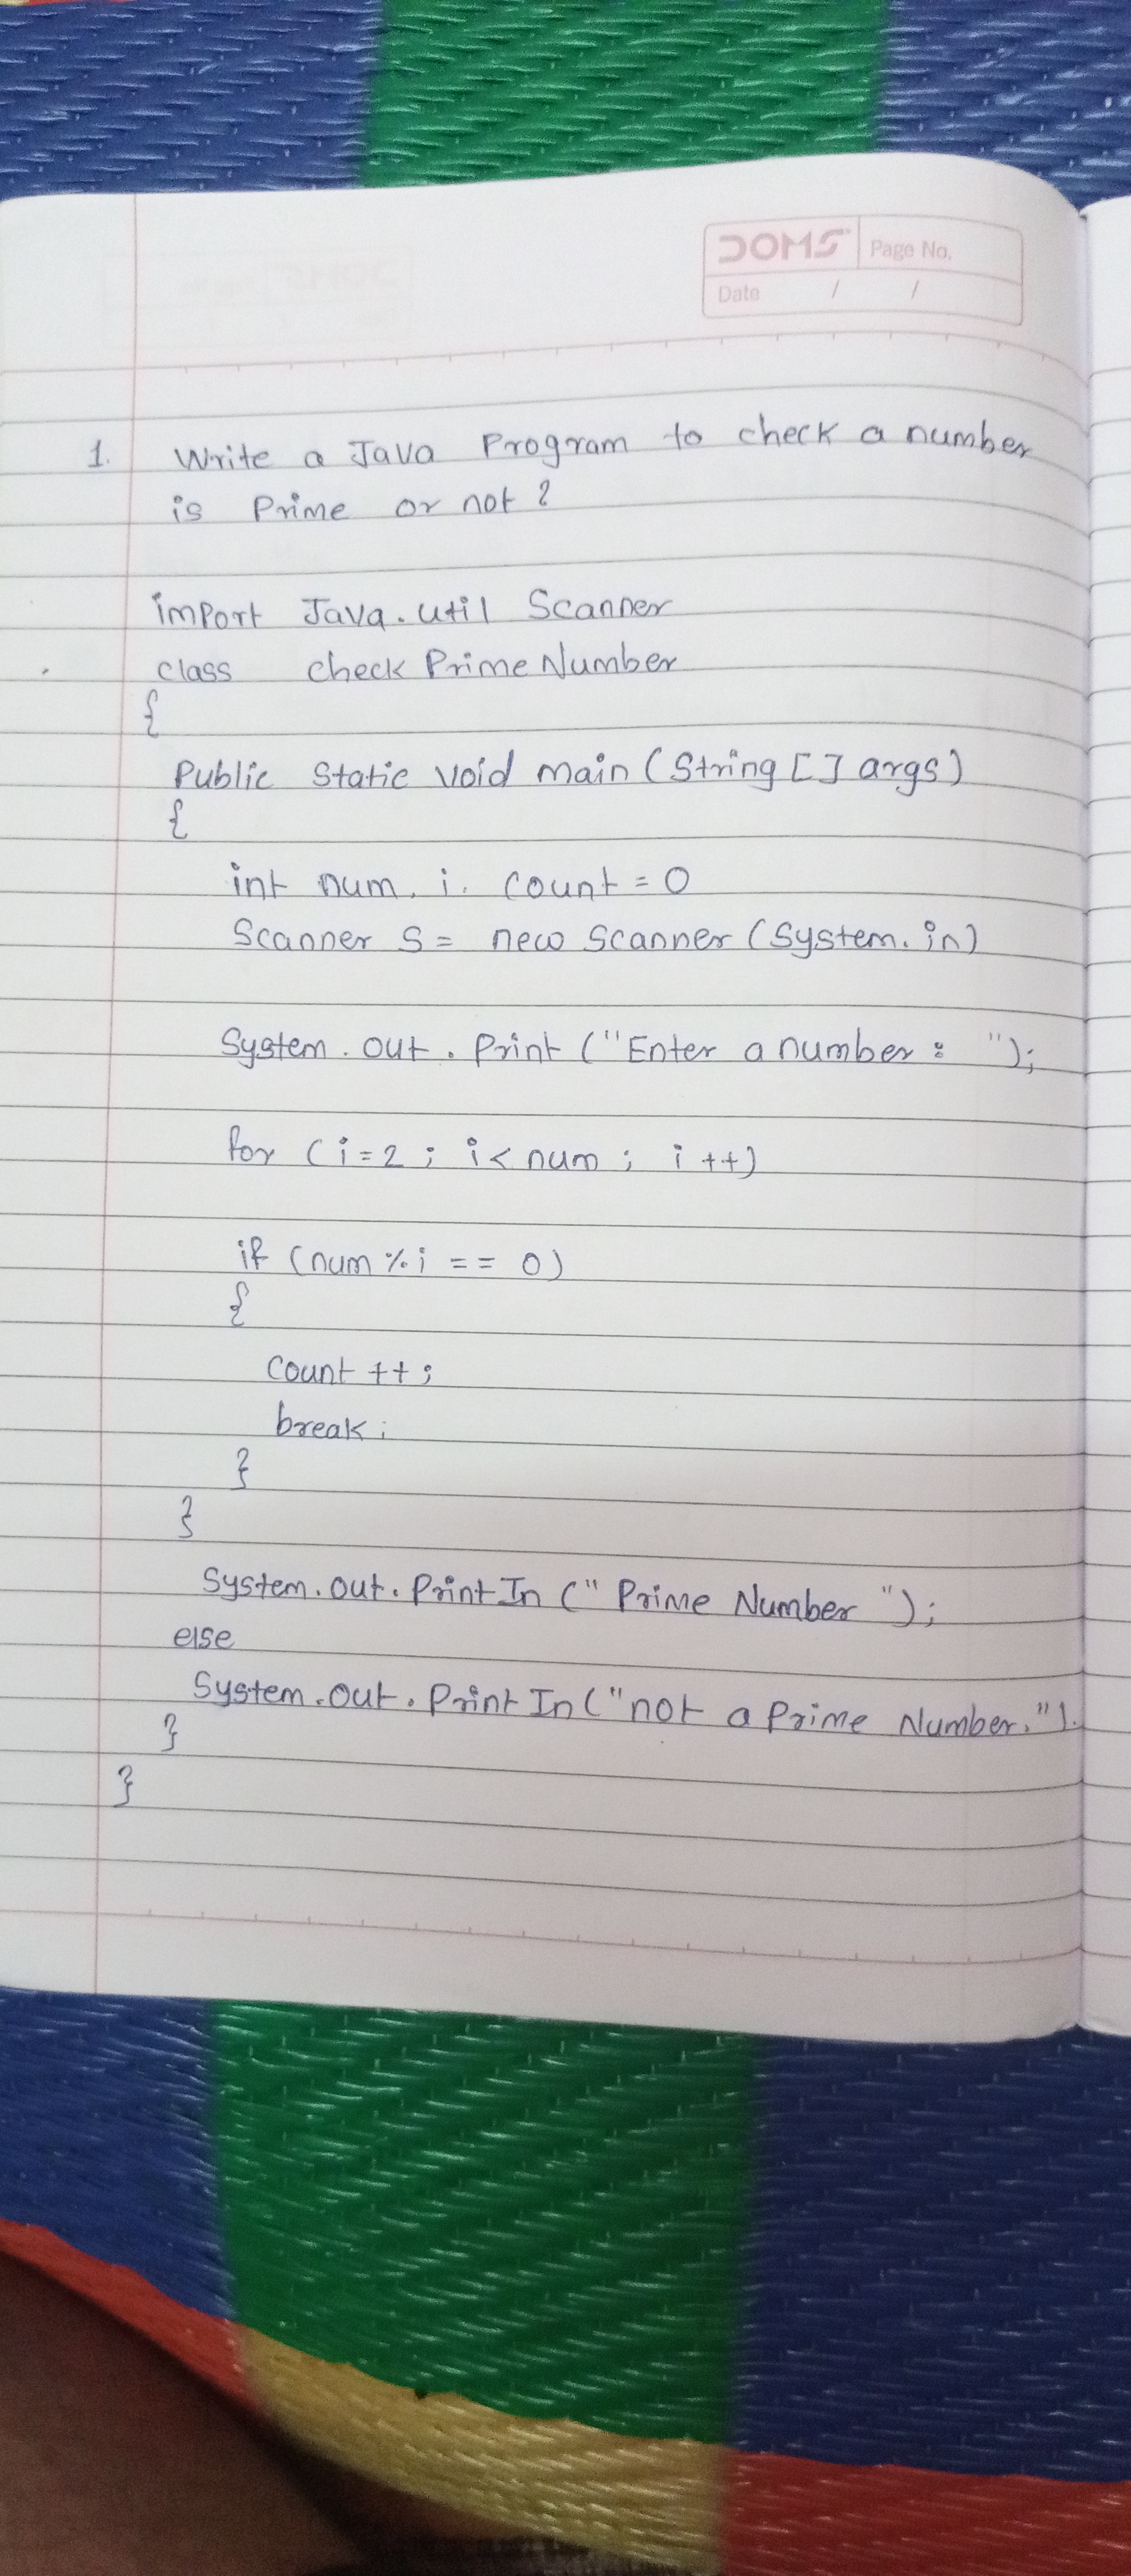 DOMS Page No.
Date / /
1. Write a Java Program to check a number
is Prime or not ?
import Java.util Scanner
class check Prime Number
{
Public Static void main (String [] args)
{
int num, i, count = 0
Scanner S = new Scanner (System.in)
System.out.Print ("Enter a number : ");
for (i=2 ; i< num ; i ++)
if (num % i == 0)
{
Count ++ ;
break ;
}
}
System.out.Print In (" Prime Number ");
else
System.out.Print In ("not a Prime Number.").
}
}